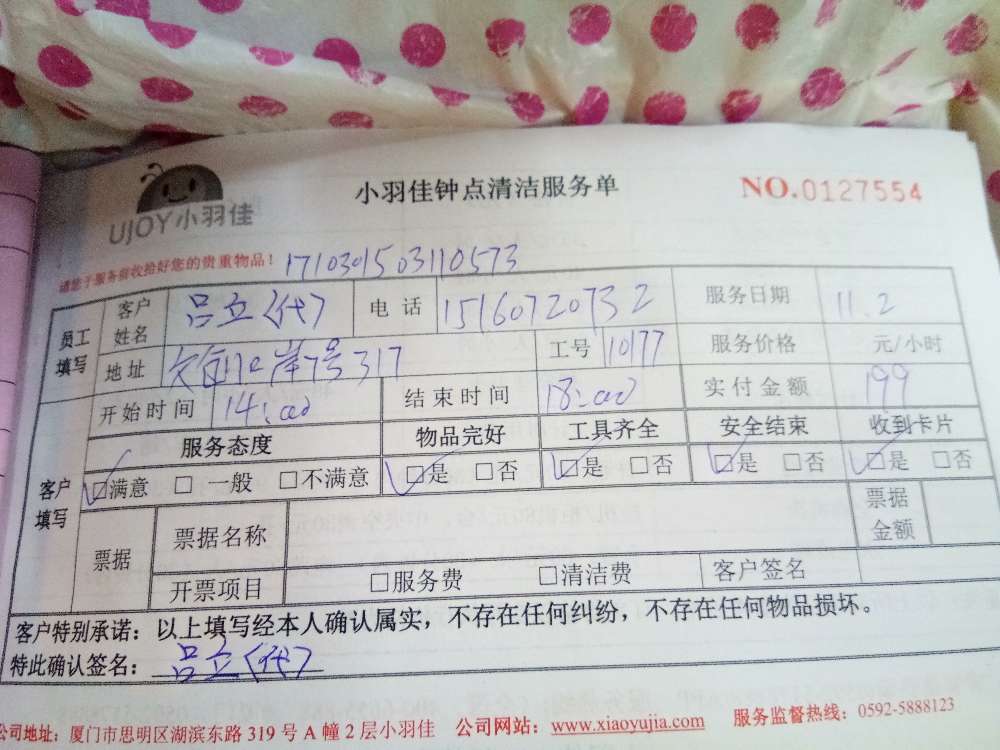 UJOY小羽佳
小羽佳钟点清洁服务单
NO.0127554
请您于服务前收拾好您的贵重物品！ 1710301503110573
员工填写 客户姓名 吕立（代） 电话 15160720732 服务日期 11.2
地址 7号317 工号 10177 服务价格 元/小时
客户填写 开始时间 14:00 结束时间 18:00 实付金额 199
服务态度 物品完好 工具齐全 安全结束 收到卡片
☑满意 □一般 □不满意 ☑是 □否 ☑是 □否 ☑是 □否 ☑是 □否
票据 票据名称 票据金额
开票项目 □服务费 □清洁费 客户签名
客户特别承诺：以上填写经本人确认属实，不存在任何纠纷，不存在任何物品损坏。
特此确认签名： 吕立（代）
公司地址：厦门市思明区湖滨东路 319 号 A 幢 2 层小羽佳 公司网站：www.xiaoyujia.com 服务监督热线：0592-5888123